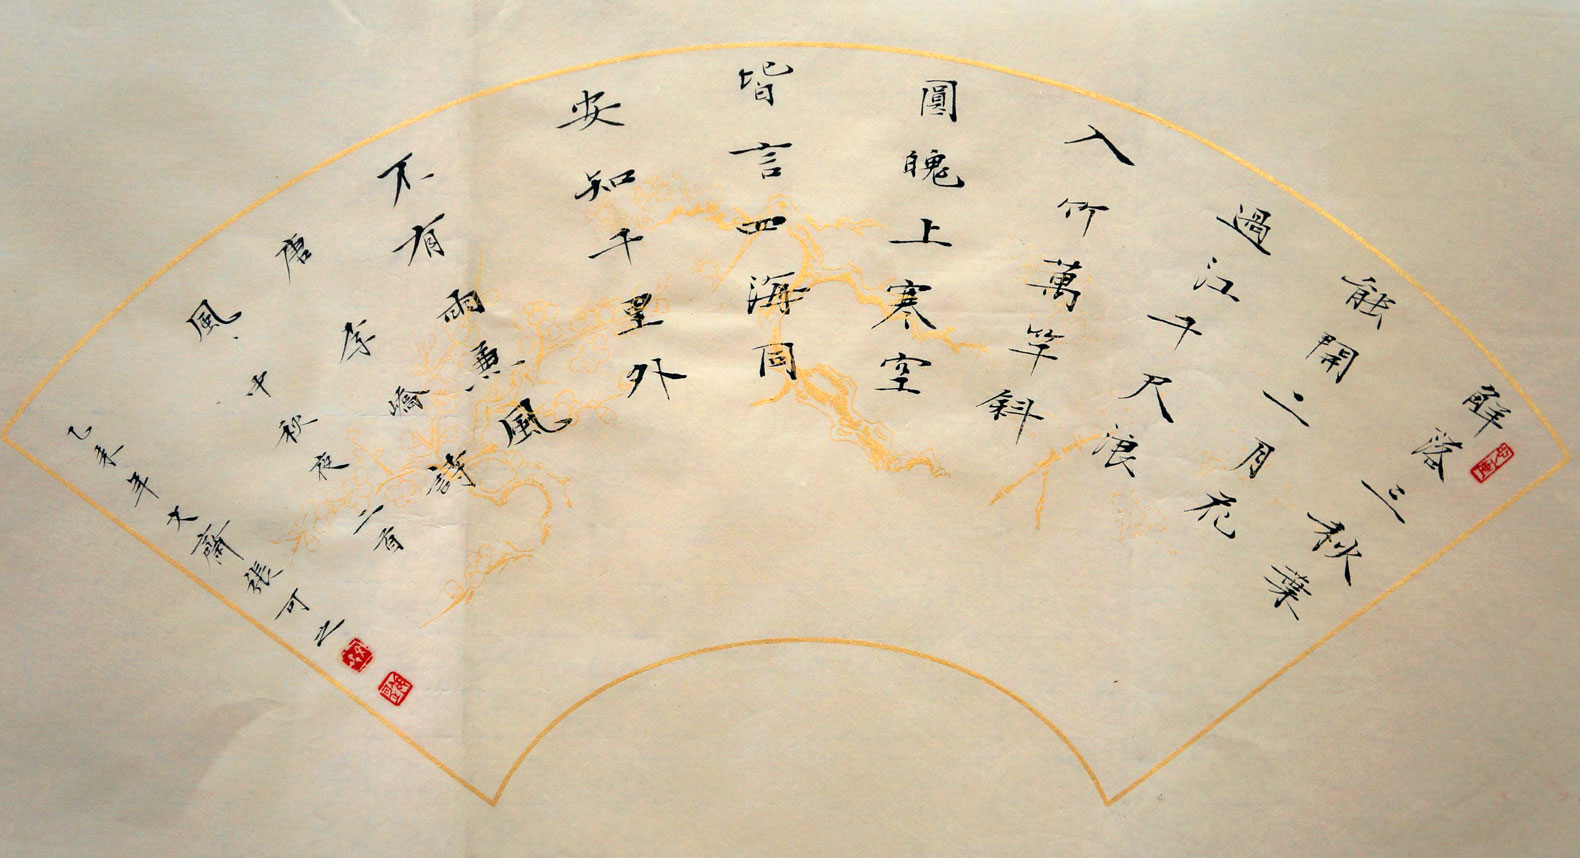 解落三秋葉
能開二月花
過江千尺浪
入竹萬竿斜
圓魄上寒空
皆言四海同
安知千里外
不有雨兼風
唐李嶠詩
風、中秋夜二首
乙未年齋張可之